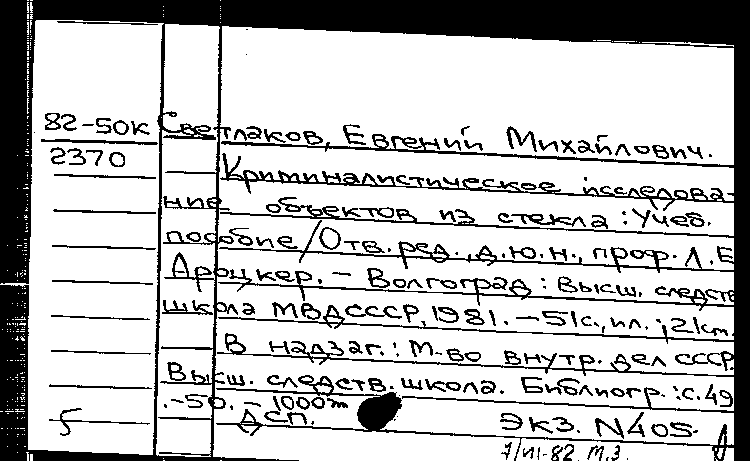 82-50К Светлаков, Евгений Михайлович.
2370
Криминалистическое исследова-
ние объектов из стекла : Учеб.
пособие / Отв. ред., д.ю.н., проф. Л.Е
Ароцкер. – Волгоград : Высш. следств
школа МВД СССР, 1981. – 51 с., ил. ; 21 cm.
В надзаг. : М-во внутр. дел СССР.
Высш. следств. школа. Библиогр. : с. 49
.-50. – 1000т
5 ДСП. ЭКЗ. N405.
7/VII-82 М.З.